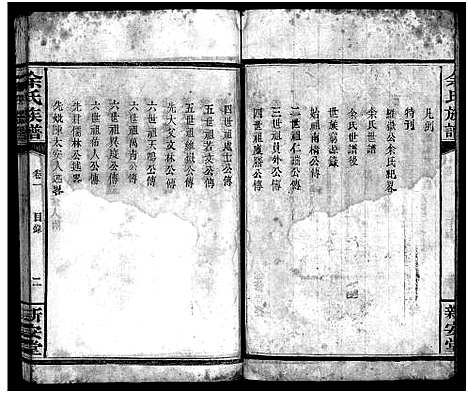 余氏族譜
凡例
特刊
羅嶽公余氏祀畧
余氏世譜
余氏世譜後
世族窮變錄
始祖南楊公傳
二世祖仁譜公傳
三世祖員外公傳
四世祖慶孫公傳
四世祖處士公傳
五世祖若文公傳
五世祖
先大父文林公傳
六世祖天鵬公傳
六世祖萬青公傳
六世祖興慶公傳
六世祖佑人公傳
先君儒林公逑畧
先妣陳太安人逑畧
余氏族譜
卷一
目錄
二
新安堂
新安堂